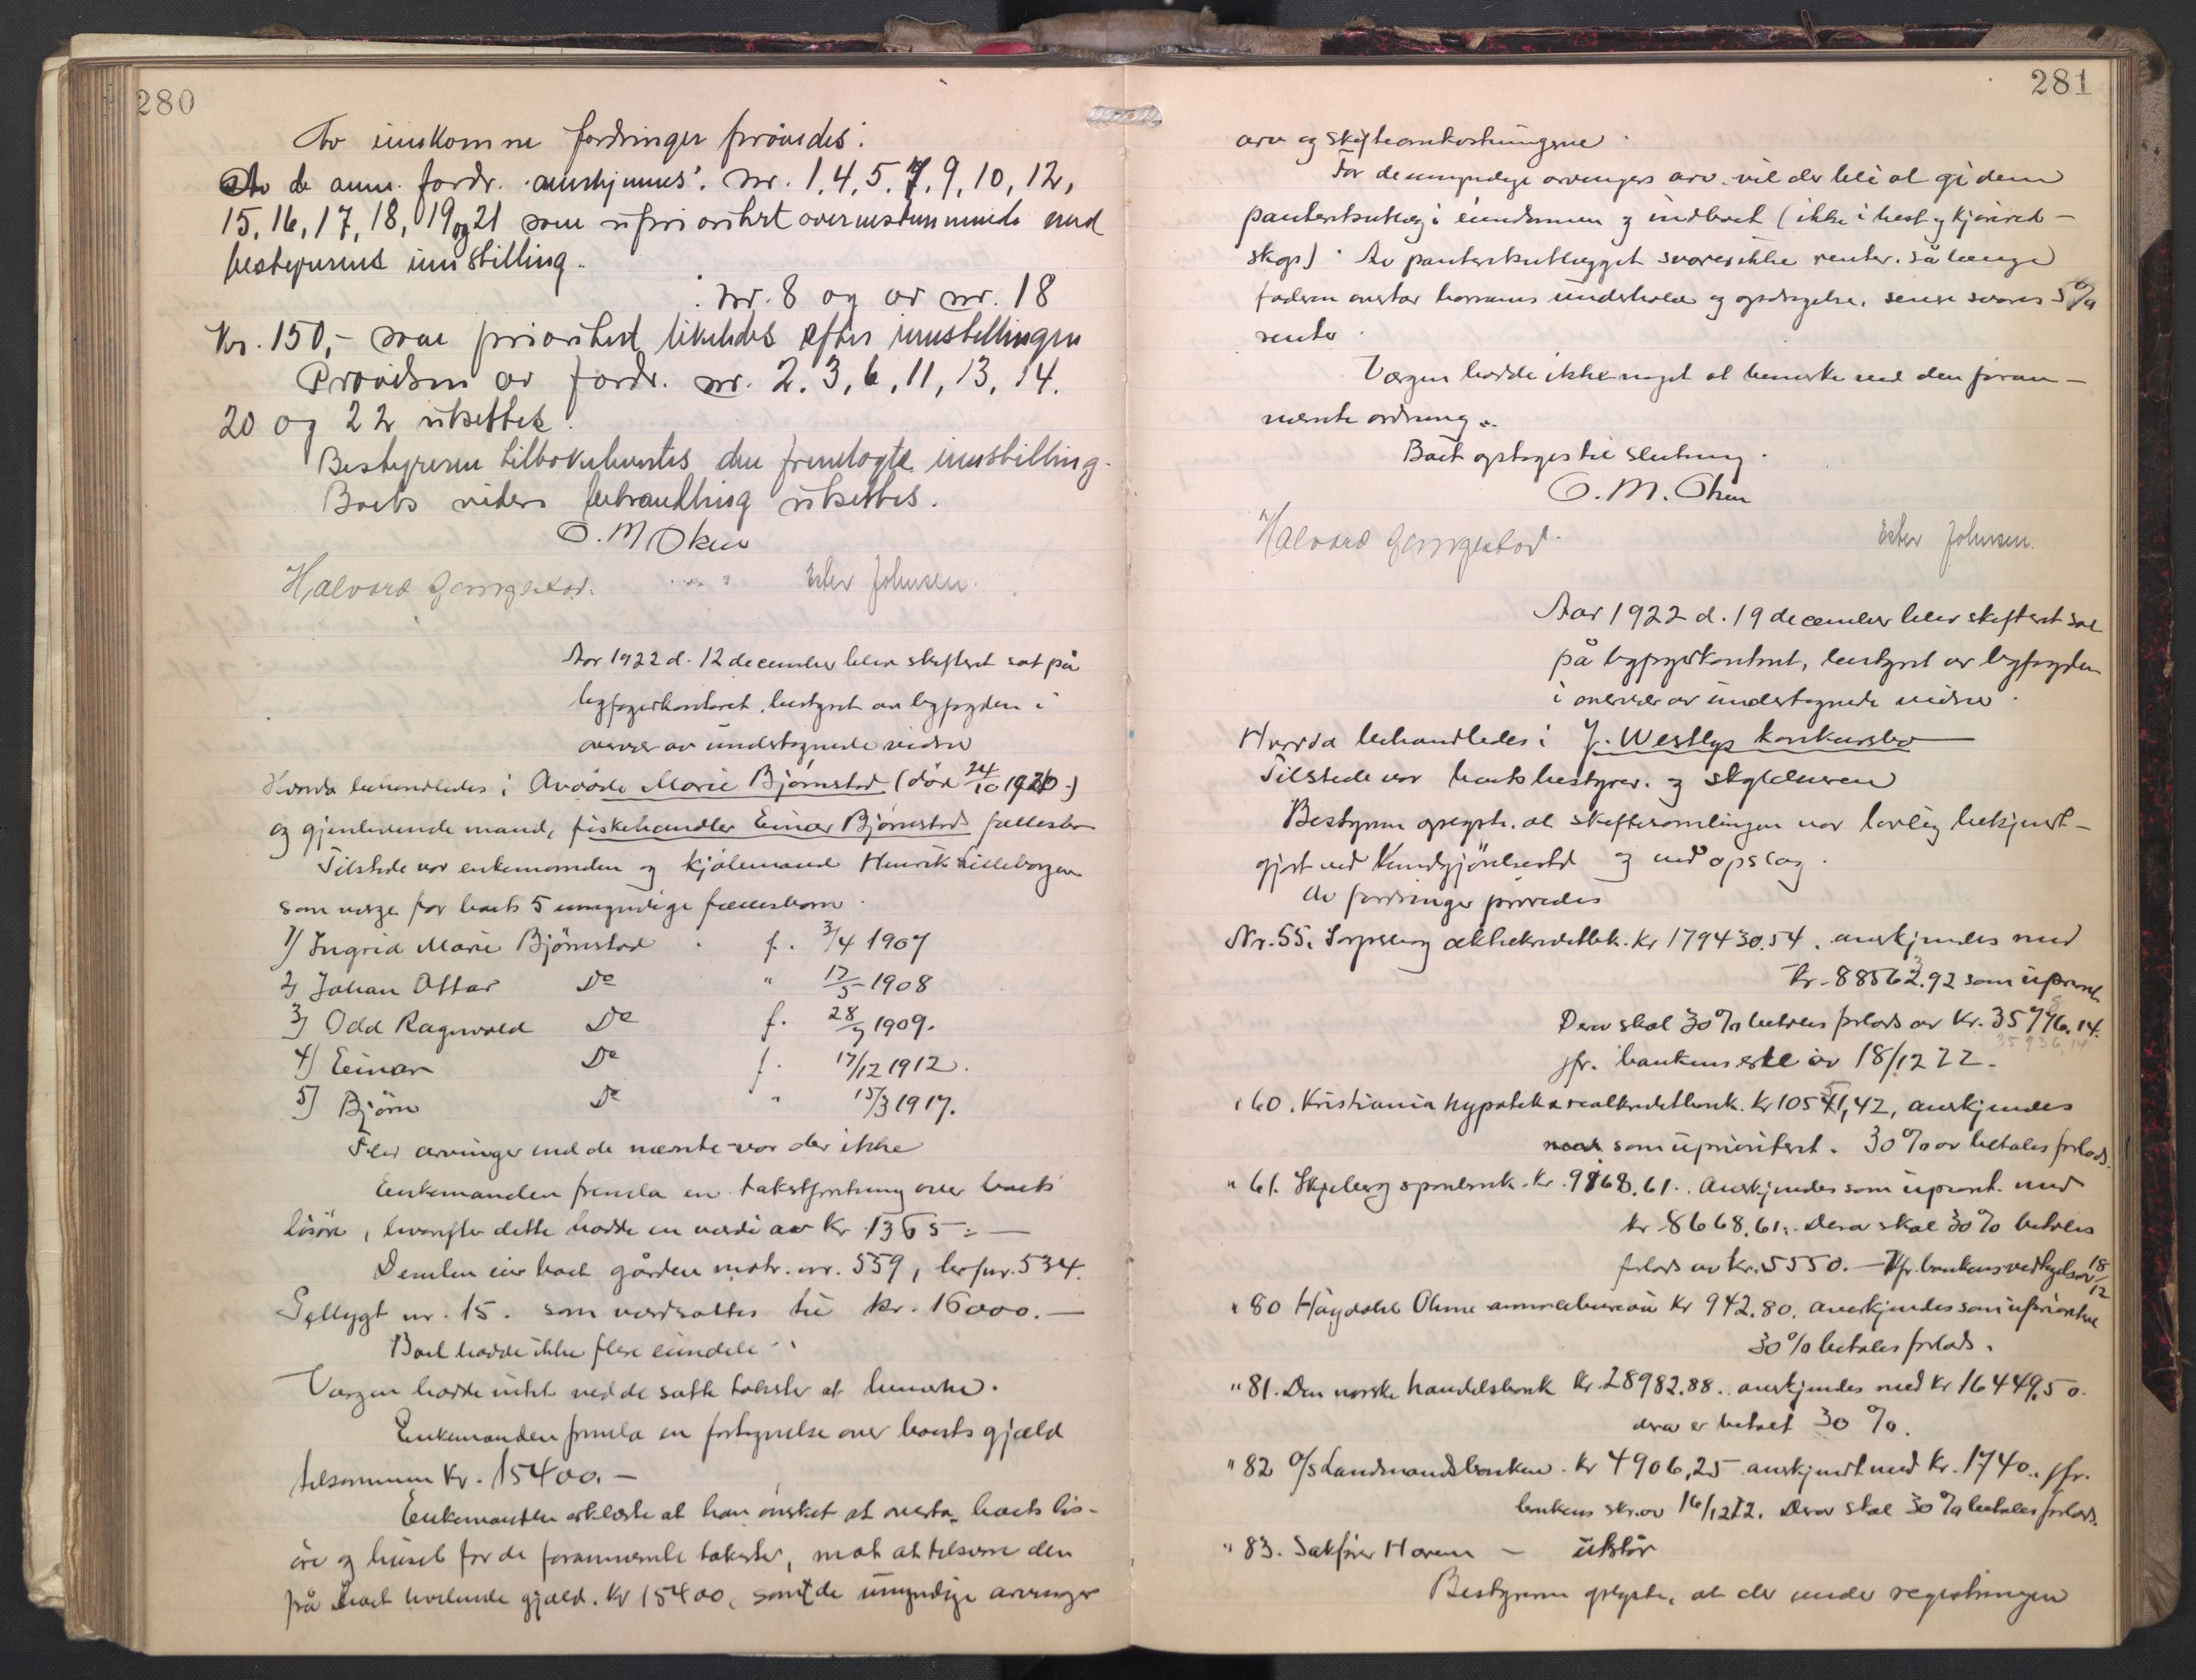 280
Av innkomne fordringer prøvedes:
Av de anm. fordr. anerkjennes: nr. 1, 4, 5, 7, 9, 10, 12,
15, 16, 17, 18, 19 og 21 som uprioritert overensstemmende med
bestyrerens innstilling.
nr. 8 og av nr. 18
Kr. 150,- som prioritert likeledes efter innstillingen
Prøvelsen av fordr. nr. 2, 3, 6, 11, 13, 14.
20 og 22 utsettes.
Bestyreren tilbakehentes den fremlagte innstilling.
Boets videre behandling utsettes.
O. M. Olsen
Halvard Ester Johnsen.
Aar 1922 d. 12 december blev skifteret sat på
byfogedkontoret, bestyret av byfogden i
overvær av undertegnede vidner
Hvorda behandledes i Marie Bjørnstad (død 24/10 1920.)
og gjenlevende mand, fiskehandler Einar Bjørnstads fællesbo
Tilstede var enkemanden og kjølemand Henrik Lilleborgen
som verge for boets 5 umyndige fællesbarn.
1) Ingrid Marie Bjørnstad f. 3/4 1907
2) Johan Ottar Do " 17/5 1908
3) Odd Ragnvald Do f. 28/7 1909.
4) Einar Do f. 17/12 1912.
5) Bjørn Do " 15/3 1917.
Fler arvinger end de nævnte var der ikke
Enkemanden fremla en takstforretning over boets
løsøre, hvorefter dette hadde en verdi av Kr. 1365.-
Desuten eier boet gården matr. nr. 559, brfnr. 534.
nr. 15. som værdsattes til kr. 16000.-
Boet hadde ikke flere eiendele.
Vergen hadde intet ved de satte takster at bemerke.
Enkemanden fremla en fortegnelse over boets gjæld
tilsammen Kr. 15400.-
Enkemanden erklærte at han ønsket at overta boets løs-
øre og huset for de forannævnte takster, mot at tilsvare den
på boet hvilende gjæld. Kr 15400, samt de umyndige arvinger
281
arv og skifteomkostningene.
For de umyndige arvingers arv vil der bli at gi dem
panteretsutlæg i eiendommen og indboet (ikke i hest og kjøred-
skap). Av panteretsutlægget svares ikke renter, så længe
faderen overtar barnas underhold og opdragelse, senere svares 5%
rente.
Vergen hadde ikke noget at bemerke ved den foran-
nævnte ordning.
Boet optoges til slutning.
O. M. Olsen
Halvard Ester Johnsen.
Aar 1922 d. 19 december blev skifteret sat
på byfogedkontoret, bestyret av byfogden
i overvær av undertegnede vidner.
Hvorda behandledes i J. Westlys konkursbo
Tilstede var boets bestyrer og skyldneren
Bestyreren oplyste at skiftesamlingen var lovlig bekjent-
gjort ved Kundgjørelsestid og ved opslag.
Av fordringer prøvedes
Nr. 55. Sarpsborg aktiekreditbk. Kr 179430.54, anerkjendes med
Kr. 88562.92 som upriorit.
Derav skal 30% betales forlods av Kr. 14.
35936 14
jfr. bankens erkl. av 18/12 22.
" 60. Kristiania hypotek & realkreditbank. Kr 10551,42, anerkjendes
som uprioritert. 30% av betales forlods.
" 61. Skjeberg sparebank. Kr. 9868.61. Anerkjendes som upriorit. med
kr 8668.61. Derav skal 30% betales
forlods av kr. 5550.- Jfr. bankens vedtagelse av 18/12
" 80 Høydahl Ohme annoncebureau Kr 942.80. anerkjendes som uprioritert
30% betales forlods.
" 81. Den norske handelsbank Kr. 28982.88. anerkjendes med Kr 16449.50.
derav er betalt 30 %.
" 82 A/S Landmandsbanken. Kr 4906,25 anerkjendt med Kr. 1740. jfr.
bankens skr. av 16/12 22. Derav skal 30% betales forlods.
" 83. Sakfører Haren - utstår
Bestyreren oplyste, at der under registreringen